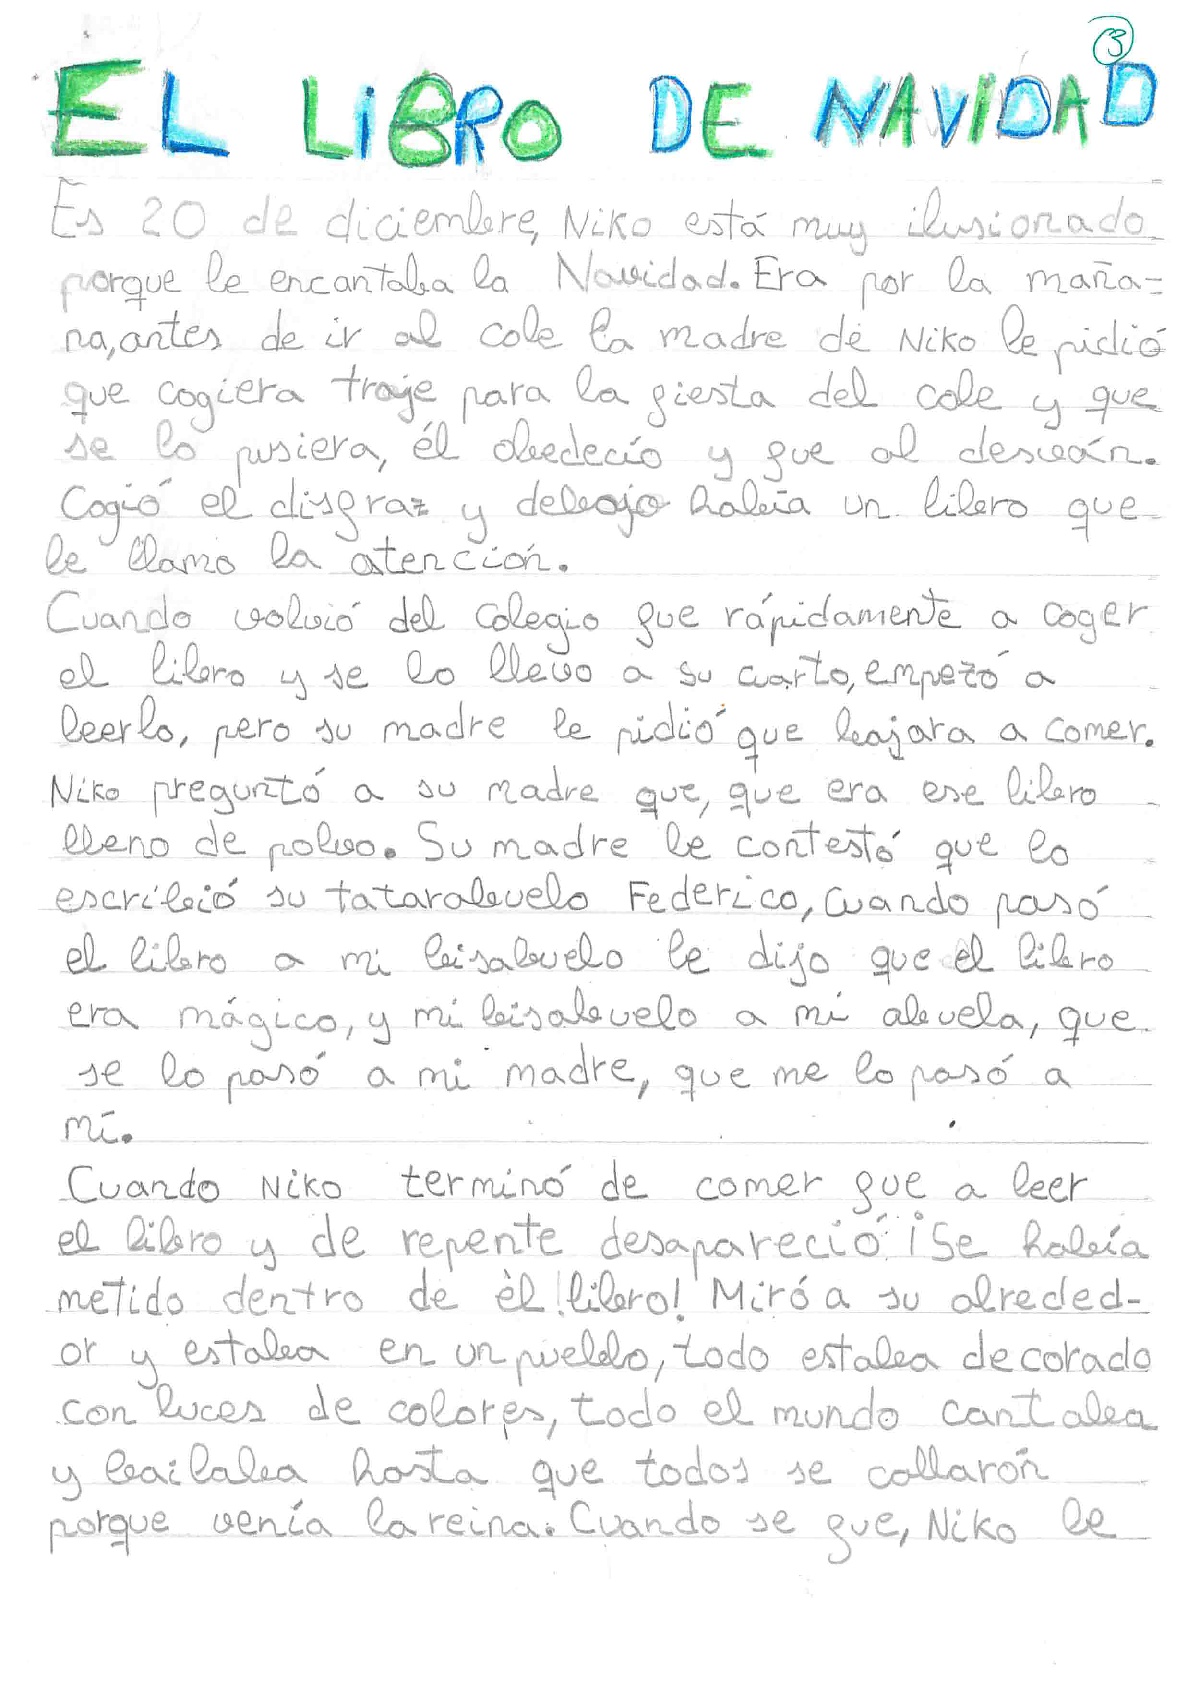 3
EL LIBRO DE NAVIDAD
Es 20 de diciembre, Niko está muy ilusionado
porque le encantaba la Navidad. Era por la maña-
na, antes de ir al cole la madre de Niko le pidió
que cogiera traje para la fiesta del cole y que
se lo pusiera, él obedecío y fue al desván.
Cogió el disfraz y debajo había un libro que
le llamo la atención.
Cuando volvió del colegio fue rápidamente a coger
el libro y se lo llevo a su cuarto, empezó a
leerlo, pero su madre le pidió que bajara a comer.
Niko preguntó a su madre que, que era ese libro
lleno de polvo. Su madre le contestó que lo
escribió su tatarabuelo Federico, cuando pasó
el libro a mi bisabuelo le dijo que el libro
era mágico, y mi bisabuelo a mi abuela, que
se lo pasó a mi madre, que me lo pasó a
mí.
Cuando Niko terminó de comer fue a leer
el libro y de repente desapareció ¡Se había
metido dentro de èl !libro! Miró a su alreded-
or y estaba en un pueblo, todo estaba decorado
con luces de colores, todo el mundo cantaba
y bailaba hasta que todos se callarón
porque venía la reina. Cuando se fue, Niko le